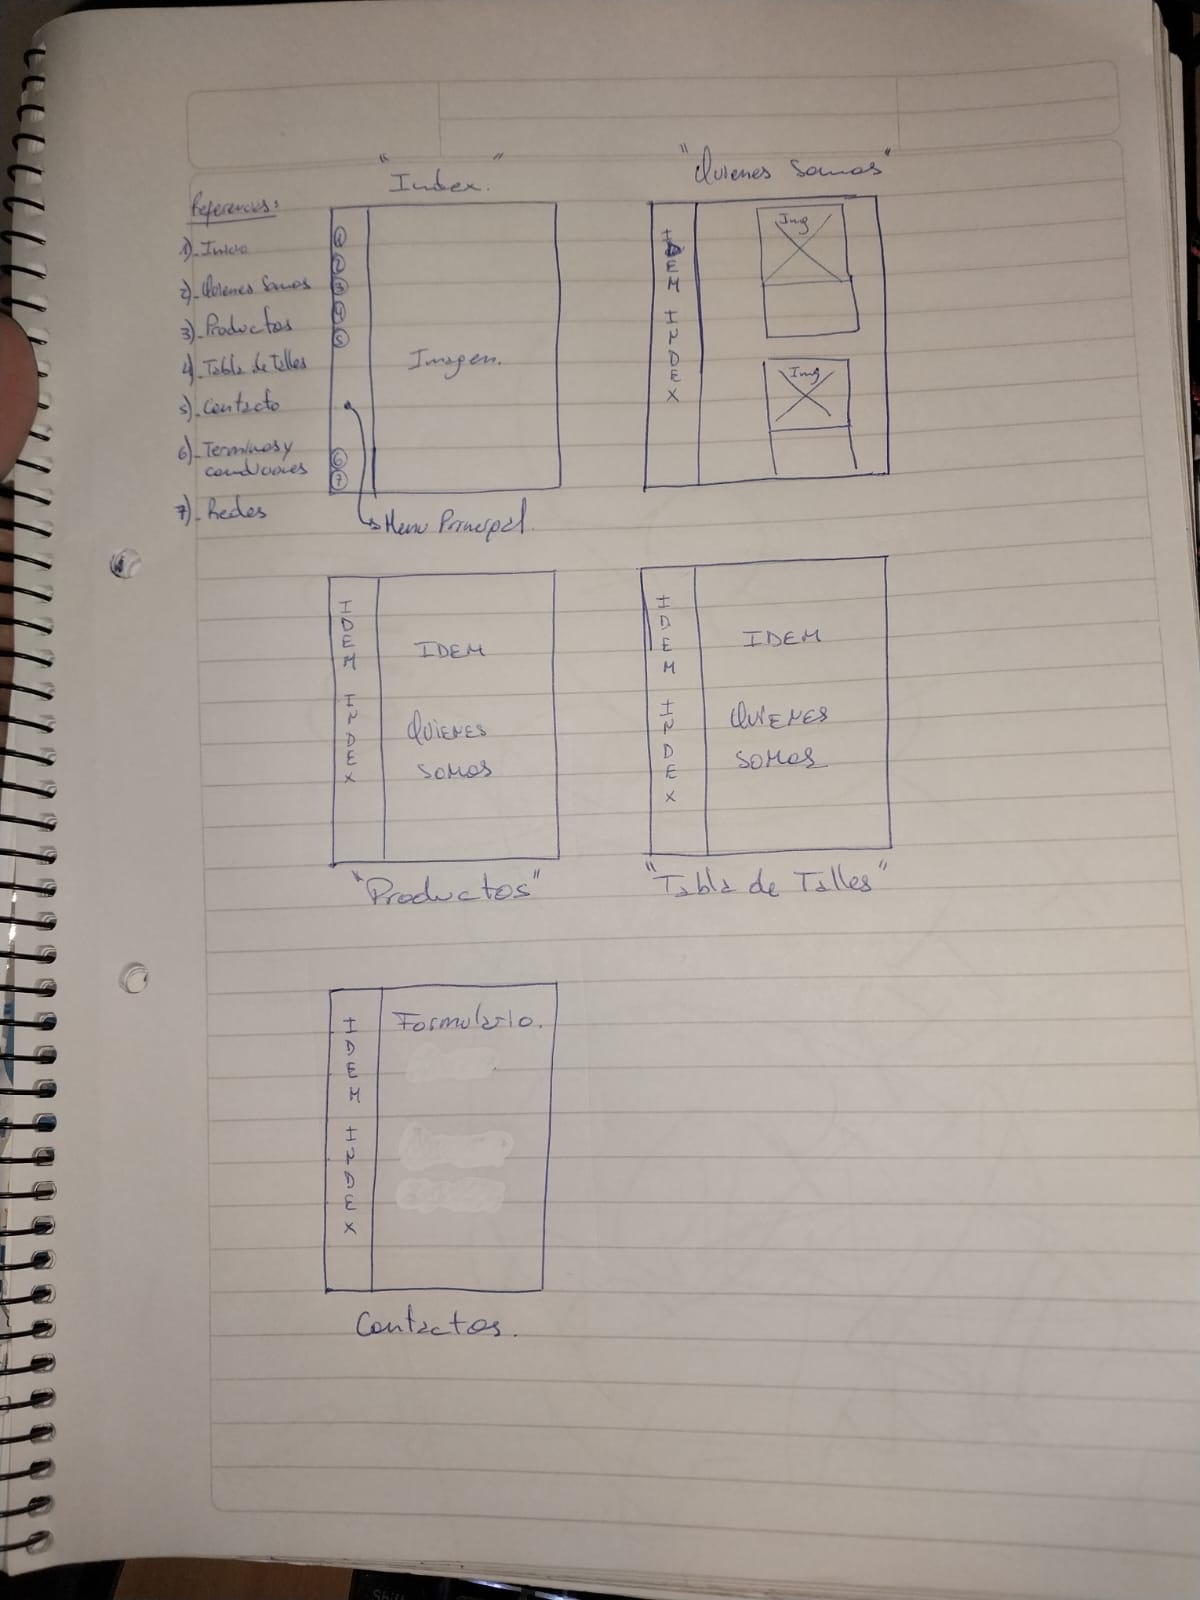 "Index."
"Quienes Somos"
Referencias:
1)- Inicio
2)- Quienes Somos
3)- Productos
4)- Tabla de Talles
5)- Contacto
6)- Terminos y
condiciones
7)- Redes
1
2
3
4
5
6
7
Imagen.
Menu Principal.
IDEM INDEX
Img
Img
IDEM INDEX
IDEM
QUIENES
SOMOS
"Productos"
IDEM INDEX
IDEM
QUIENES
SOMOS
"Tabla de Talles"
IDEM INDEX
Formulario.
Contactos.